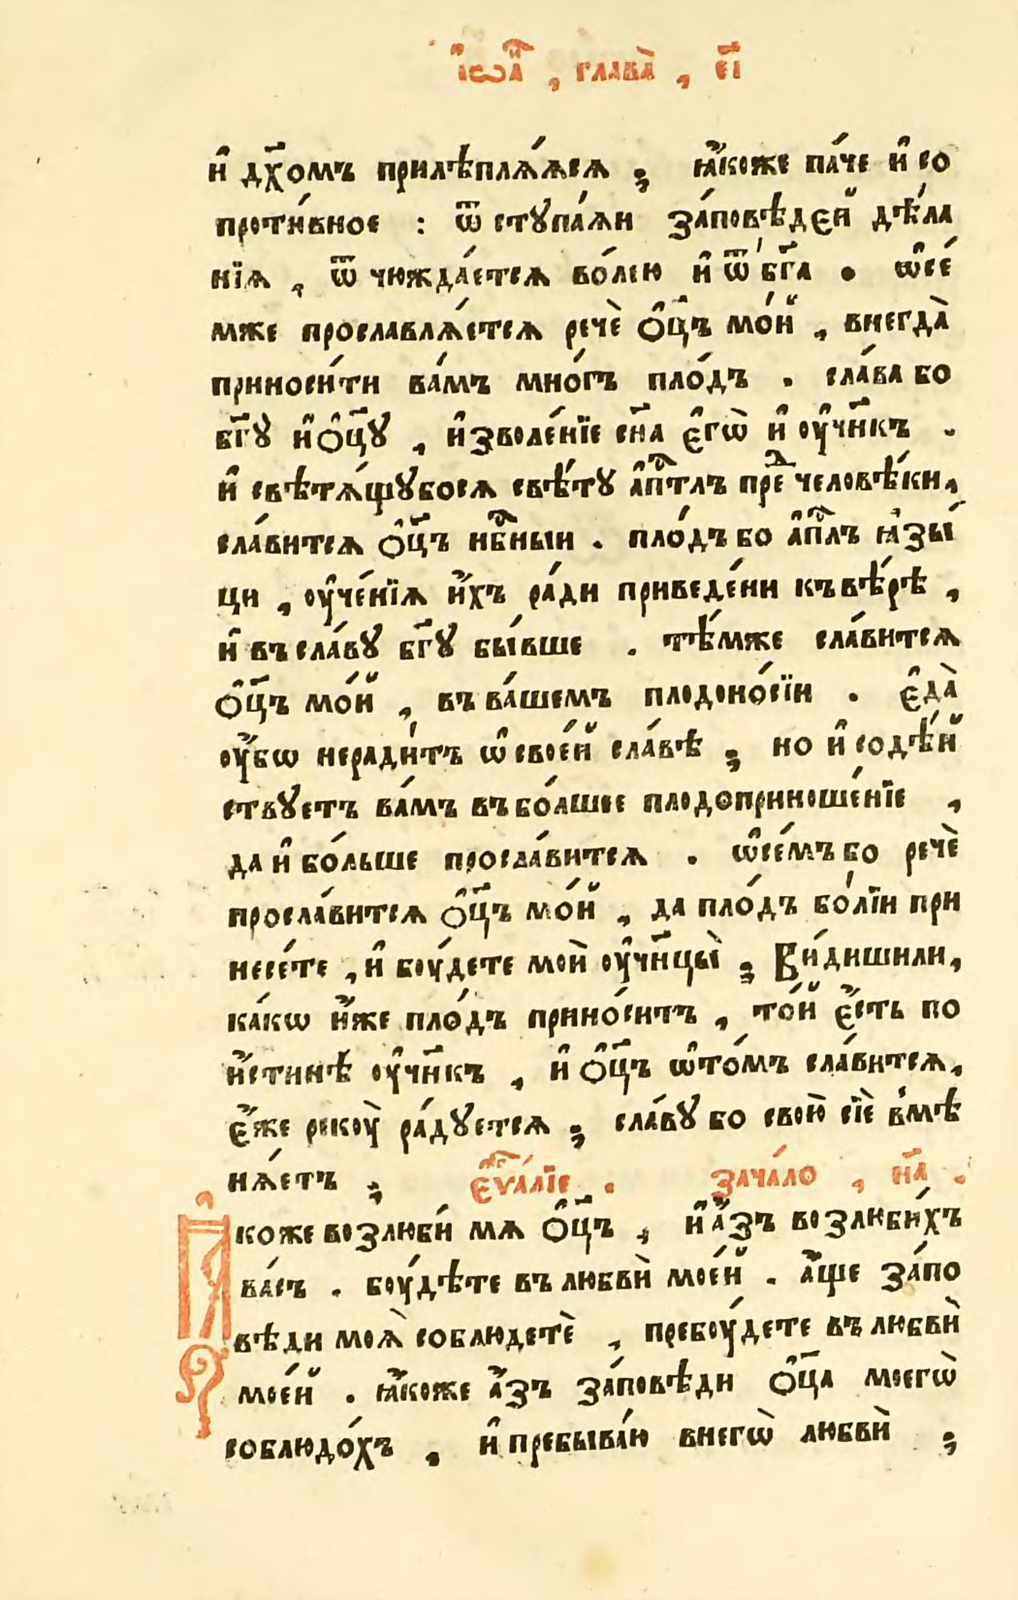 і҆ѡа́ , глава̀ , е҃і
и҆ дх҃омъ прилѣплѧ́ѧсѧ ; ꙗ҆́коже па́че и҆ со
проти́вное : ѿ стꙋпа́ѧи за́повѣдей дѣ́ла
нїѧ , ѿ чюжда́етсѧ во́лею и҆ ѿ бг҃а . ѡ҆ се́
мже прославлѧ́етсѧ речѐ ѻ҆ц҃ъ мо́й , внегда̀
приноси́ти ва́мъ мно́гъ пло́дъ . сла́ва бо
бг҃ꙋ и҆ ѻ҆ц҃ꙋ , и҆зволе́нїе сн҃а є҆гѡ̀ и҆ оу҆чн҃къ .
и҆ свѣтѧ́щꙋбосѧ свѣ́тꙋ а҆пⷭ҇тлъ преⷣ человѣ́ки,
сла́витсѧ ѻ҆ц҃ъ нбⷭ҇ныи . пло́дъ бо а҆пⷭ҇лъ ꙗ҆зы́
цы , оу҆че́нїѧ и҆́хъ ра́ди приведе́ни къ вѣ́рѣ ,
и҆ въ сла́вꙋ бг҃ꙋ бы́вше . тѣ́мже сла́витсѧ
ѻ҆ц҃ъ мо́й , въ ва́шемъ плодоно́сїи . є҆да̀
оу҆́бѡ неради́тъ ѡ҆ свое́й сла́вѣ ; но и҆ содѣ́й
ствꙋетъ ва́мъ въ бо́лшее плодоприноше́нїе ,
да и҆ бо́льше просла́витсѧ . ѡ҆ се́мъ бо речѐ
просла́витсѧ ѻ҆ц҃ъ мо́й , да пло́дъ бо́лїи при
несе́те , и҆ боу́дете моѝ оу҆чн҃цы̀ ; Ви́дишили,
ка́кѡ и҆́же пло́дъ прино́ситъ , то́й є҆́сть по
и҆́стинѣ оу҆чн҃къ , и҆ ѻ҆ц҃ъ ѡ҆ то́мъ сла́витсѧ,
є҆́же рекоу̀ ра́дꙋетсѧ ; сла́вꙋ бо свою̀ сїѐ вмѣ
нѧ́етъ ; є҆ѵⷢ҇а́лїе . зача́ло , н҃а .
Ꙗ҆коже возлюби́ мѧ ѻ҆ц҃ъ , и҆ а҆́зъ возлюби́хъ
ва́съ . боу́дѣте въ любвѝ мое́й . а҆́ще за́по
вѣди моѧ̀ соблюдетѐ , пребоу́дете въ любвѝ
мое́й . ꙗ҆́коже а҆́зъ за́повѣди ѻ҆ц҃а моегѡ̀
соблюдо́хъ , и҆ пребыва́ю внегѡ̀ любвѝ ;